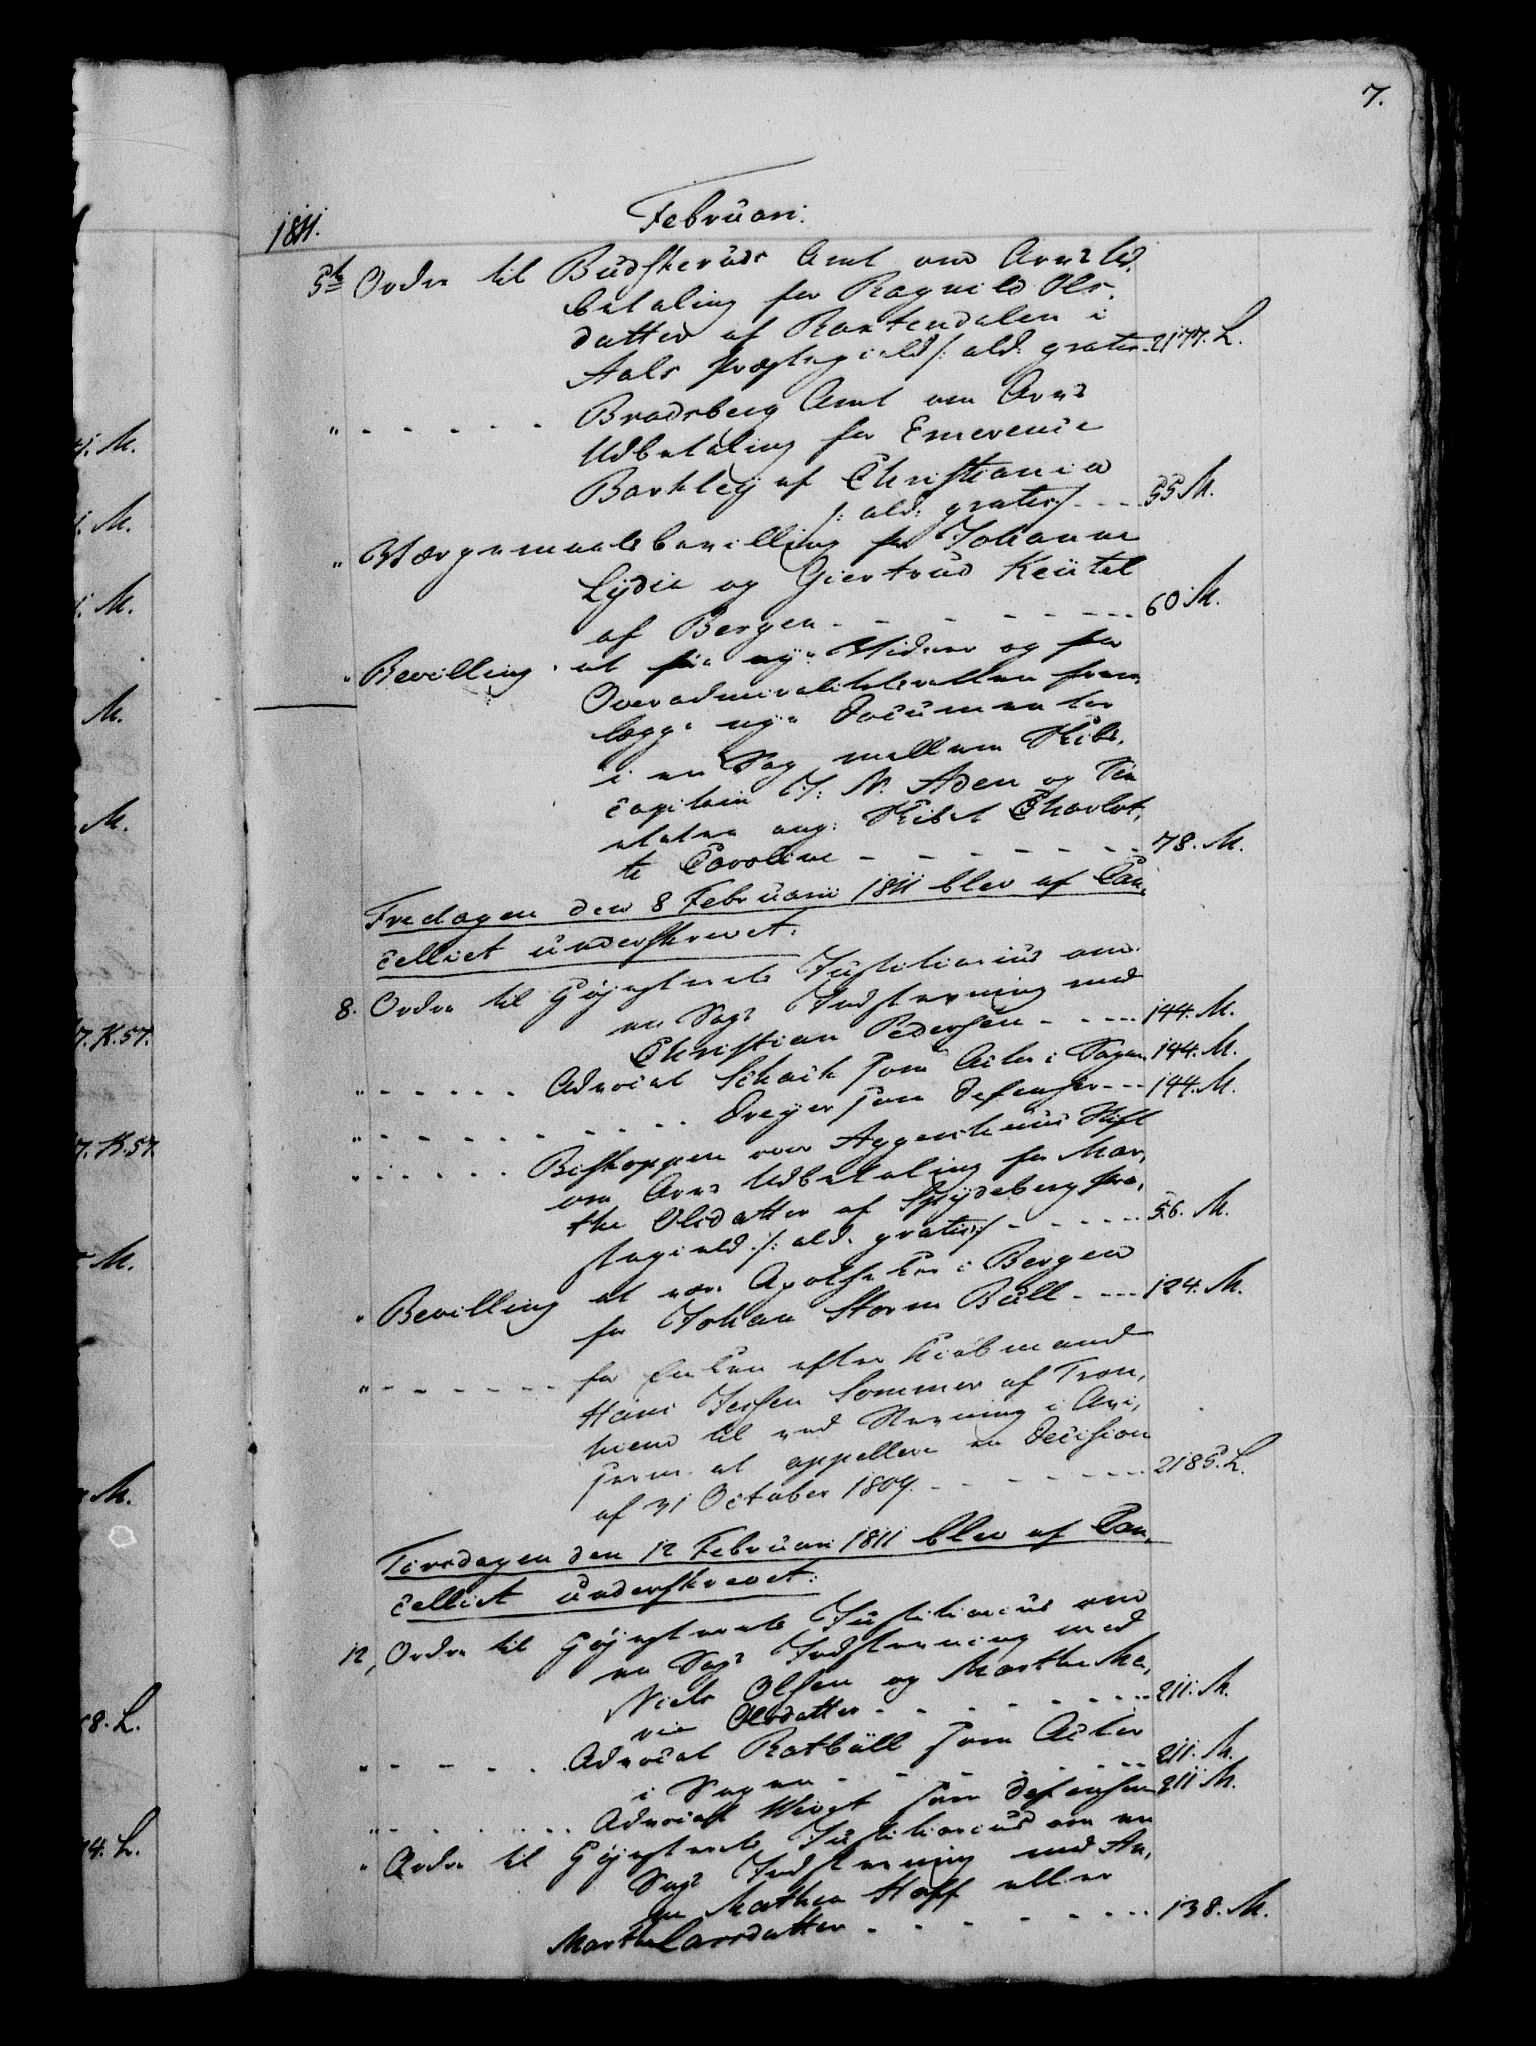 7.
1811. Februari.
5te Ordre til Budskeruds Amt om Arvs Ud,
betaling for Ragnild Ols,
datter af Rootendalen i
Aals Præstegield /: ald: gratis. 2177. L.
" - - - - - Bradsberg Amt om Arvs
Udbetaling for Emerence
Barkley af Christiania
/: ald: gratis :/ - - - 55 M.
" Værgemaalsbevilling for Johanne
Lydie og Giertrud Keutel
af Bergen - - - - - - - 60 M.
" Bevilling at føre nye Vidner og for
Overadmiralitetsretten frem,
lægge nye Documenter
i en Sag mellem Skibs,
capitain J: N. Aden og
ang: Skibet Charlot,
te Caroline - - - - - - - 78. M.
Fredagen den 8 Februarii 1811 blev af Can,
celliet underskrevet:
8. Ordre til Høiesterets Justitiarius om
en Sags Indstevning med
Christian Pedersen - - - - 144. M.
" - - - - - Advocat Schack som Actor i Sagen 144. M.
" - - - - - - - - - Dreyer som Defensor - - - 144. M.
" - - - - - Biskoppen over Aggershuus Stift
om Arvs Udbetaling for Mar,
the Olsdatter af Spydeberg Præ,
stegield /: ald. gratis :/ - - - - - 56. M.
" Bevilling at være Apotheker i Bergen
for Johan Storm Bull - - - - 124. M.
" - - - - - - - for Enken efter Kiøbmand
Hans Jensen Sommer af Tron,
hiem til ved Stevning i
at appellere en Decision
af 31 October 1809. - - - - - - - 2185. L.
Tirsdagen den 12 Februari 1811 blev af Can,
celliet underskrevet:
12, Ordre til Høiesterets Justitiarius om
en Sags Indstevning med
Niels Olsen og Marthe Ma,
rie Olsdatter - - - - - - - - 211. M.
" - - - - - Advocat Rotbüll som Actor
i Sagen - - - - - - - 211. M.
" - - - - - - Advocat som Defensor 211 M.
" Ordre til Høiesterets Justitiarius om en
Sags Indstevning med An,
ne Mathea Hoff eller
Marthe Larsdatter - - - - - - - - 138. M.
M.
M.
M.
M.
M.
7. K. 57.
7. K. 57.
M.
M.
8. L.
4. L.